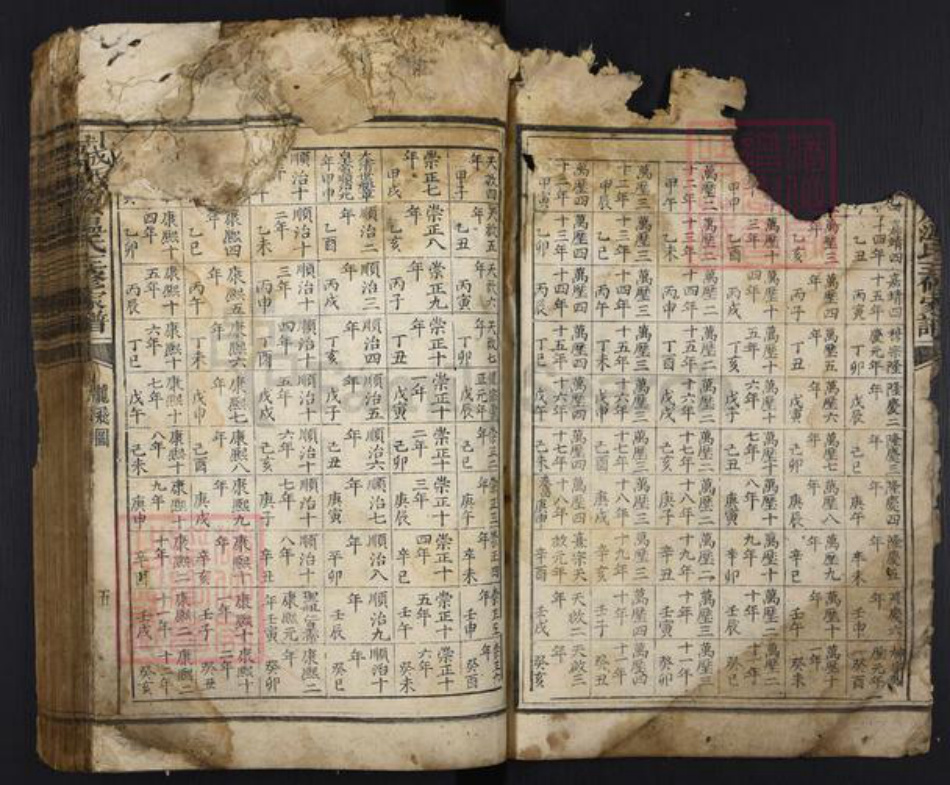 四十四年乙丑
嘉靖四十五年丙寅
穆宗隆慶元年丁卯
隆慶二年戊辰
隆慶三年己巳
隆慶四年庚午
隆慶五年辛未
隆慶六年壬申
元年癸酉
萬歷三年乙亥
萬歷四年丙子
萬歷五年丁丑
萬歷六年戊寅
萬歷七年己卯
萬歷八年庚辰
萬歷九年辛巳
萬歷十年壬午
萬歷十一年癸未
甲申
三年乙酉
萬歷十四年丙戌
萬歷十五年丁亥
萬歷十六年戊子
萬歷十七年己丑
萬歷十八年庚寅
萬歷十九年辛卯
萬歷二十年壬辰
萬歷二十一年癸巳
萬歷二十二年甲午
萬歷二十三年乙未
萬歷二十四年丙申
萬歷二十五年丁酉
萬歷二十六年戊戌
萬歷二十七年己亥
萬歷二十八年庚子
萬歷二十九年辛丑
萬歷三十年壬寅
萬歷三十一年癸卯
萬歷三十二年甲辰
萬歷三十三年乙巳
萬歷三十四年丙午
萬歷三十五年丁未
萬歷三十六年戊申
萬歷三十七年己酉
萬歷三十八年庚戌
萬歷三十九年辛亥
萬歷四十年壬子
萬歷四十一年癸丑
萬歷四十二年甲寅
萬歷四十三年乙卯
萬歷四十四年丙辰
萬歷四十五年丁巳
萬歷四十六年戊午
萬歷四十七年己未
萬歷四十八年庚申
熹宗天啟元年辛酉
天啟二年壬戌
天啟三年癸亥
天啟四年甲子
天啟五年乙丑
天啟六年丙寅
天啟七年丁卯
正元年戊辰
崇正二年己巳
崇正三年庚午
崇正四年辛未
崇正五年壬申
崇正六年癸酉
崇正七年甲戌
崇正八年乙亥
崇正九年丙子
崇正十年丁丑
崇正十一年戊寅
崇正十二年己卯
崇正十三年庚辰
崇正十四年辛巳
崇正十五年壬午
崇正十六年癸未
年甲申
順治二年乙酉
順治三年丙戌
順治四年丁亥
順治五年戊子
順治六年己丑
順治七年庚寅
順治八年辛卯
順治九年壬辰
順治十年癸巳
順治十
順治十二年乙未
順治十三年丙申
順治十四年丁酉
順治十五年戊戌
順治十六年己亥
順治十七年庚子
順治十八年辛丑
康熙元年壬寅
康熙二年癸卯
康熙四年乙巳
康熙五年丙午
康熙六年丁未
康熙七年戊申
康熙八年己酉
康熙九年庚戌
康熙十年辛亥
康熙十一年壬子
康熙十二年癸丑
康熙十四年乙卯
康熙十五年丙辰
康熙十六年丁巳
康熙十七年戊午
康熙十八年己未
康熙十九年庚申
康熙二十年辛酉
康熙二十一年壬戌
康熙二十二年癸亥
氏三修家譜
五